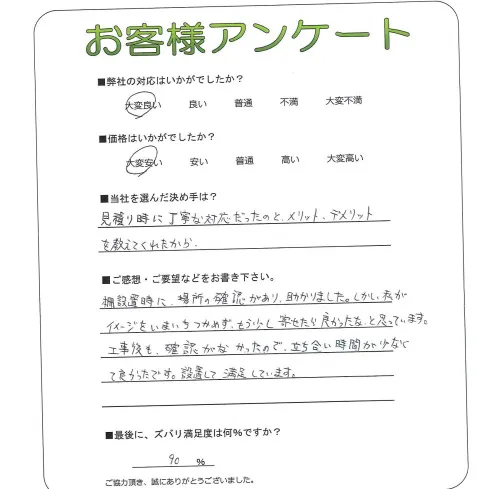 お客様アンケート
■弊社の対応はいかがでしたか？
大変良い 良い 普通 不満 大変不満
■価格はいかがでしたか？
大変安い 安い 普通 高い 大変高い
■当社を選んだ決め手は？
見積り時に丁寧な対応だったのと、メリット、デメリット
を教えてくれたから、
■ご感想・ご要望などをお書き下さい。
棚設置時に、場所の確認があり、助かりました。しかし、私が
イメージをいまいちつかめず、もう少し寄せたら良かったな、と思っています。
工事後も、確認がなかったので、立ち合い時間が少なく
て良かったです。設置して満足しています。
■最後に、ズバリ満足度は何%ですか？
90 %
ご協力頂き、誠にありがとうございました。